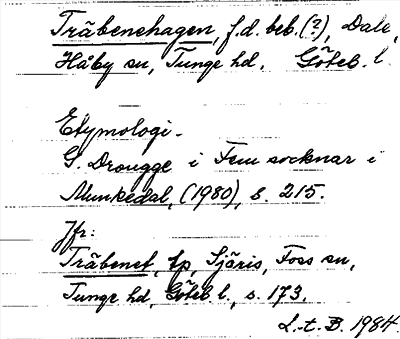 Träbenehagen, f.d. beb. (?), Dale,
Håby sn, Tunge hd, Göteb. l.
Etymologi.
G. Drougge i Fem socknar i
Munkedal, (1980), s. 215.
Jfr:
Träbenet, tp, Sjöris, Foss sn,
Tunge hd, Göteb l., s. 173.
L.t.B. 1984